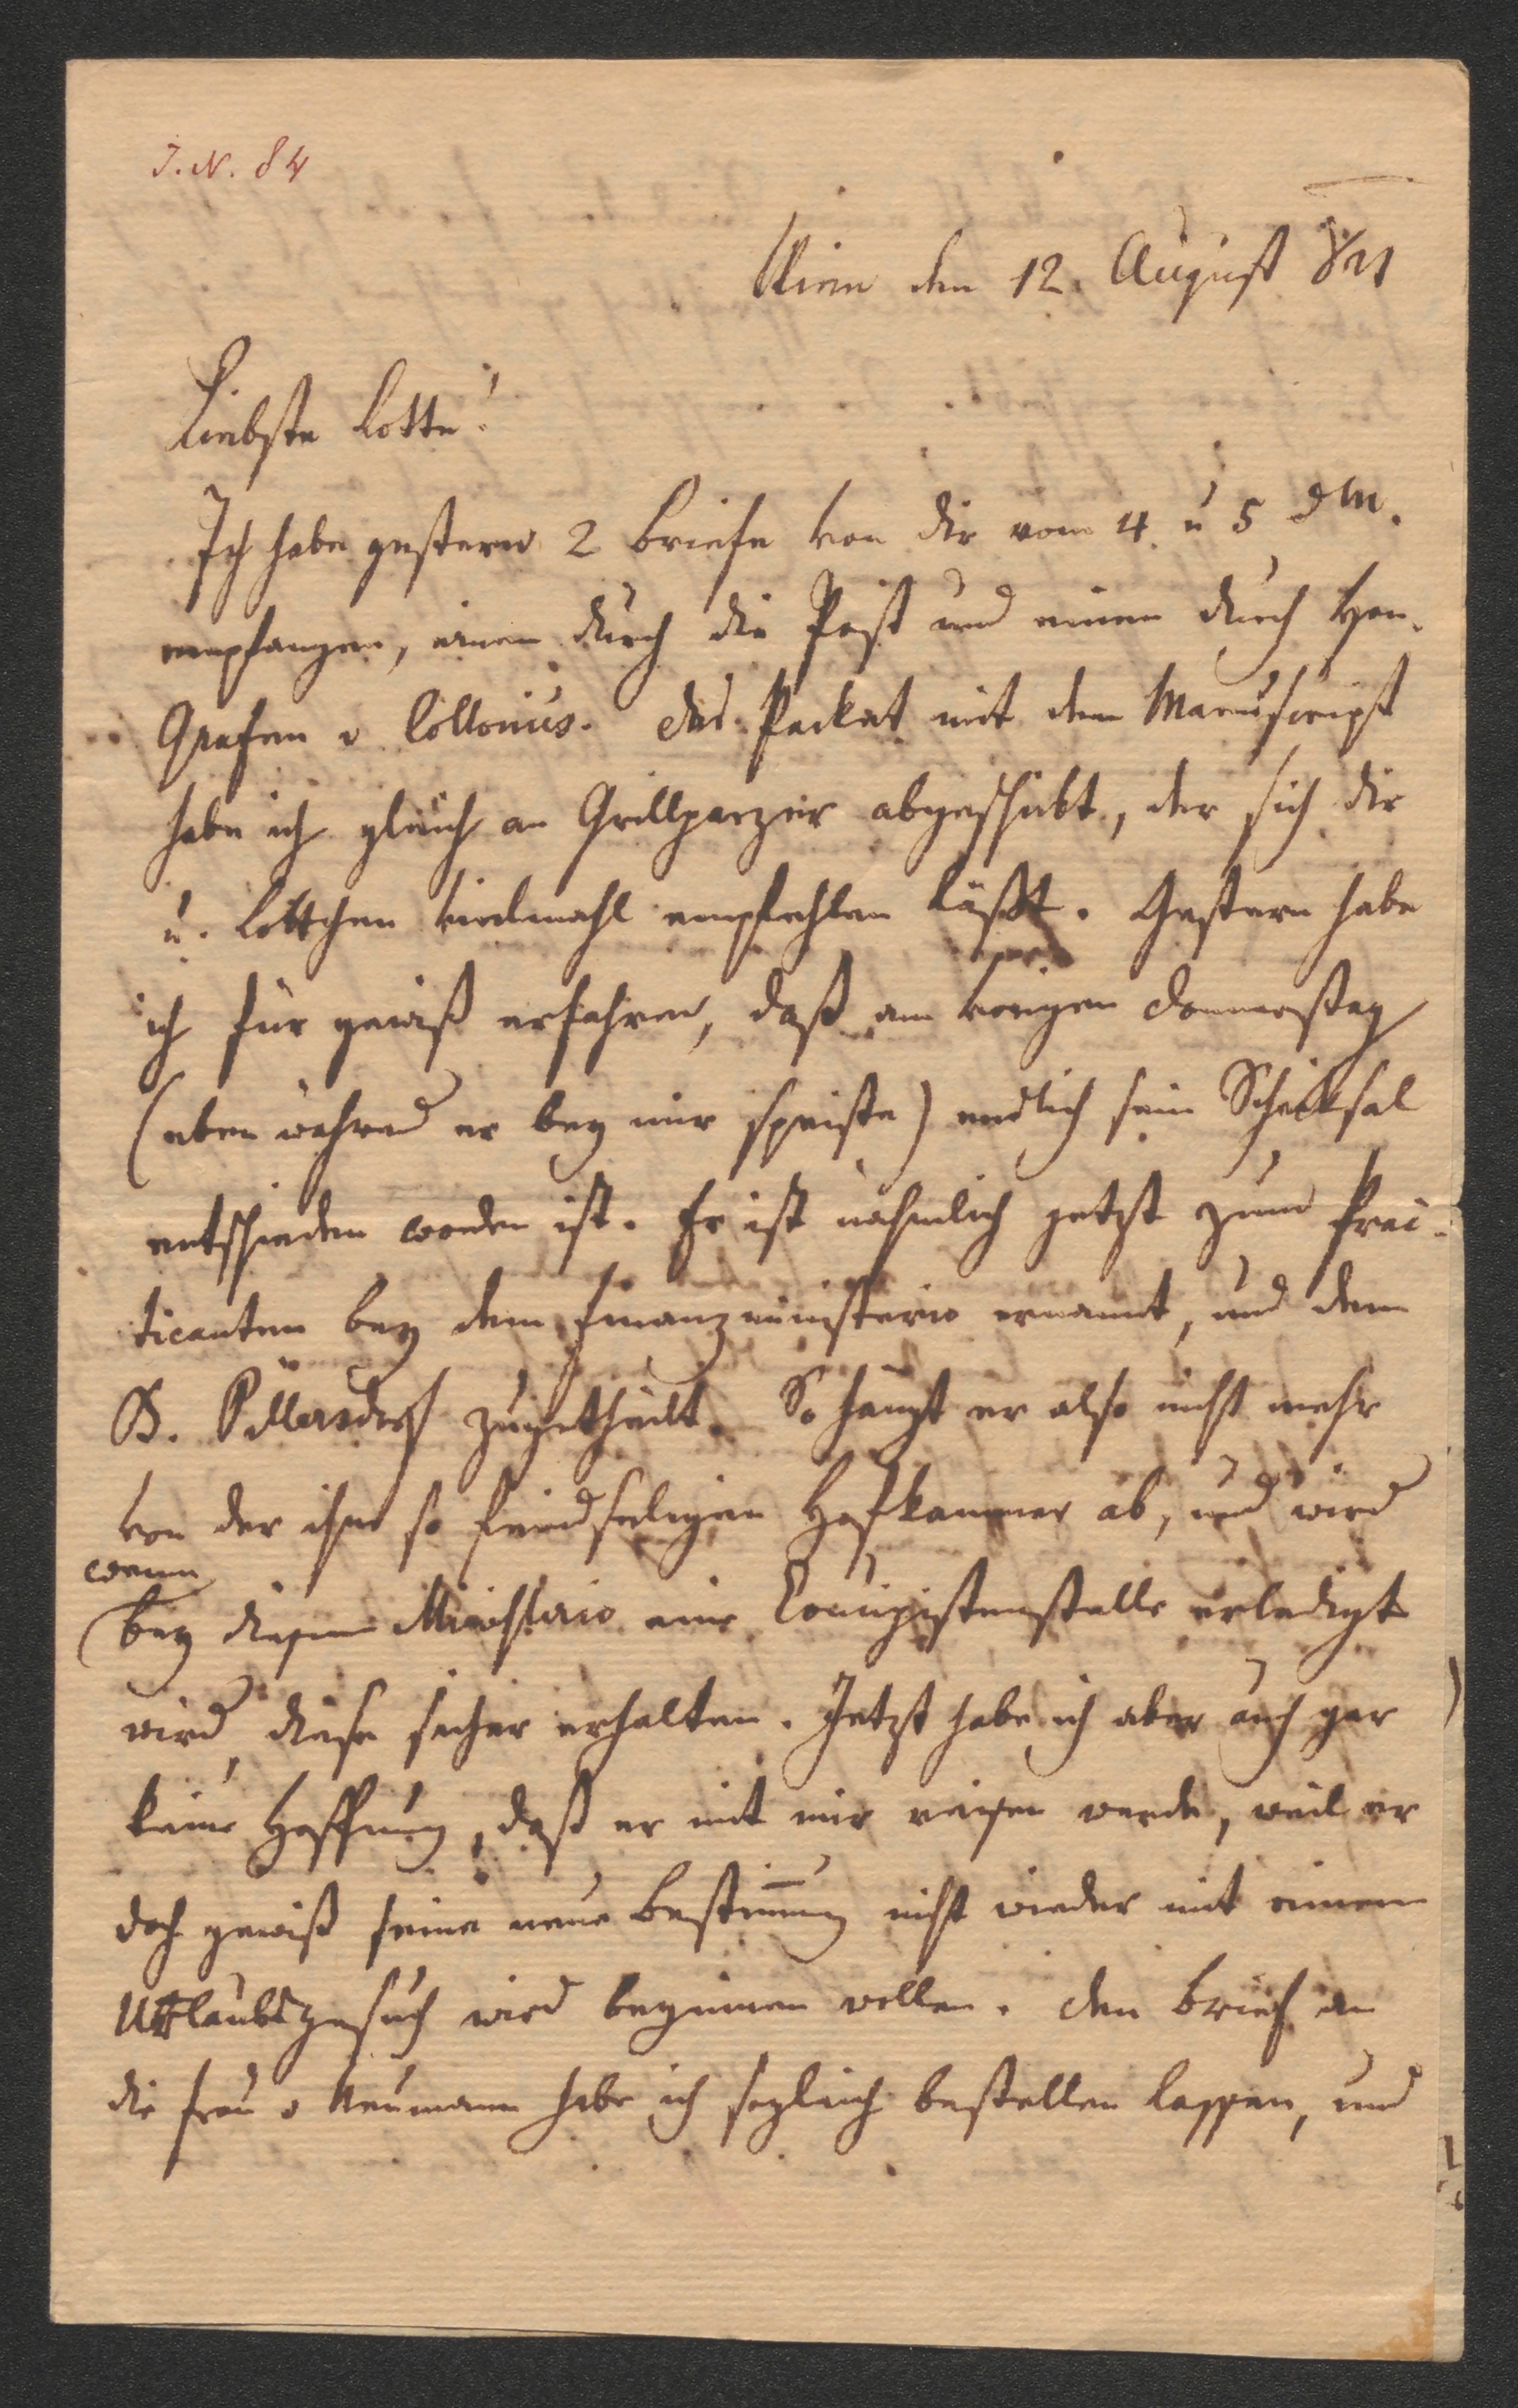 J. N. 84
Wien den 12. August 821
Liebste Lotte!
Ich habe gestern 2 Briefe von dir vom 4. u 5 d M.
empfangen, einen durch die Post und einen durch Hrn.
Grafen v Collonius. Das Packet mit dem Manuscript
habe ich gleich an Grillparzer abgeschickt, der sich dir
u. Lottchen vielmahl empfehlen läßt. Gestern habe
ich für gewiß erfahren, daß am vorigen Donnerstag
(eben währed er bey mir speiste) endlich sein Schicksal
entschieden worden ist. Er ist nähmlich jetzt zum Prac-
ticanten bey dem Finanzministerio ernannt, und dem
B. Pillersdorf zugetheilt. So hängt er also nicht mehr
von der ihm so feindseligen Hofkammer ab, und wird
wenn
bey diesem Ministerio eine Concipistenstelle erledigt
wird, diese sicher erhalten. Jetzt habe ich aber auch gar
keine Hoffnung, daß er mit mir reisen werde, weil er
doch gewiß seine neue Bestim̄ung nicht wieder mit einem
Urlaubsgesuch wird beginnen wollen. Den Brief an
die Frau v Neumann habe ich sogleich bestellen lassen, und